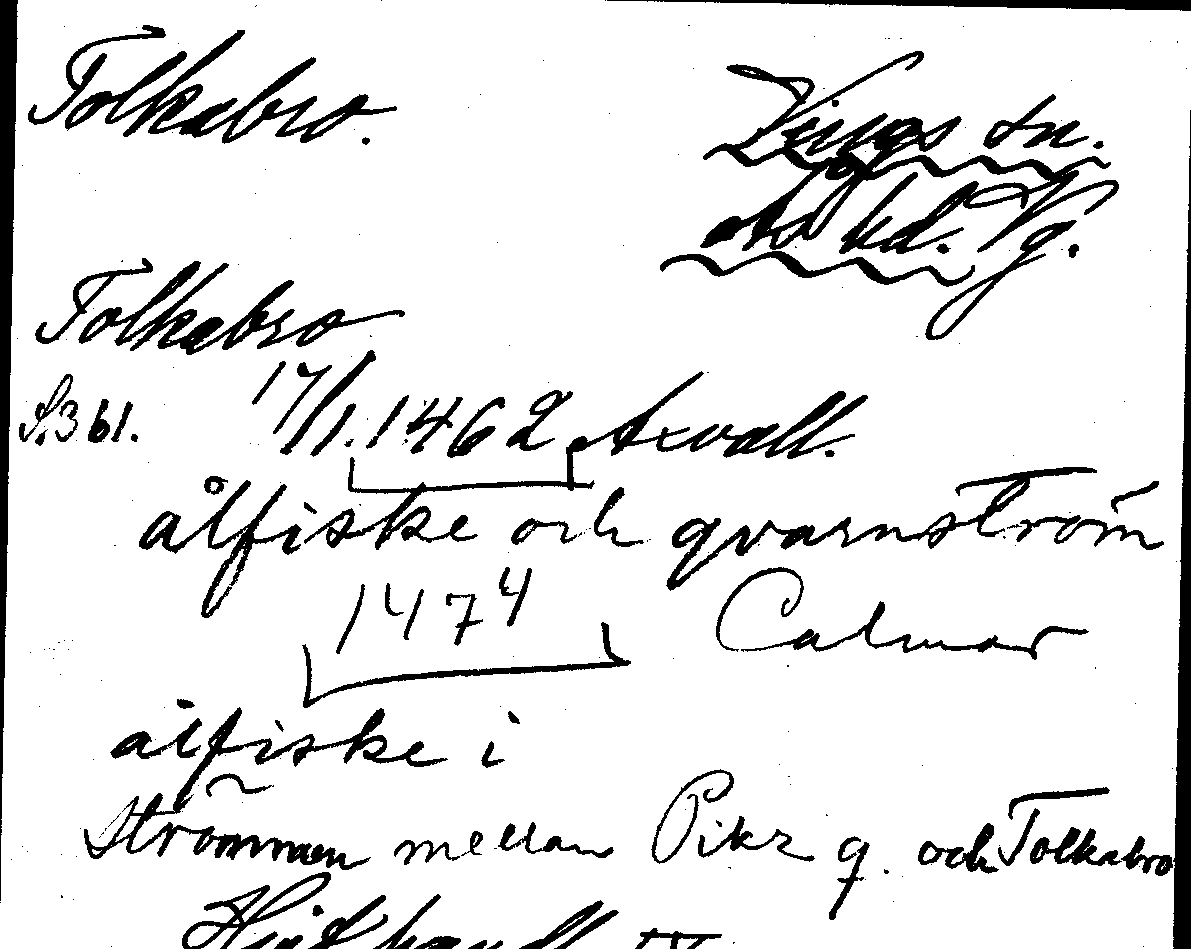 Tolkabro.
Vings sn.
Ås hd. Vg.
Tolkabro
S. 361. 17/1. 1462. Axvall.
ålfiske och qvarnström
1474 Calmar
ålfiske i
Strömmen mellan Pikz q. och Tolkabro